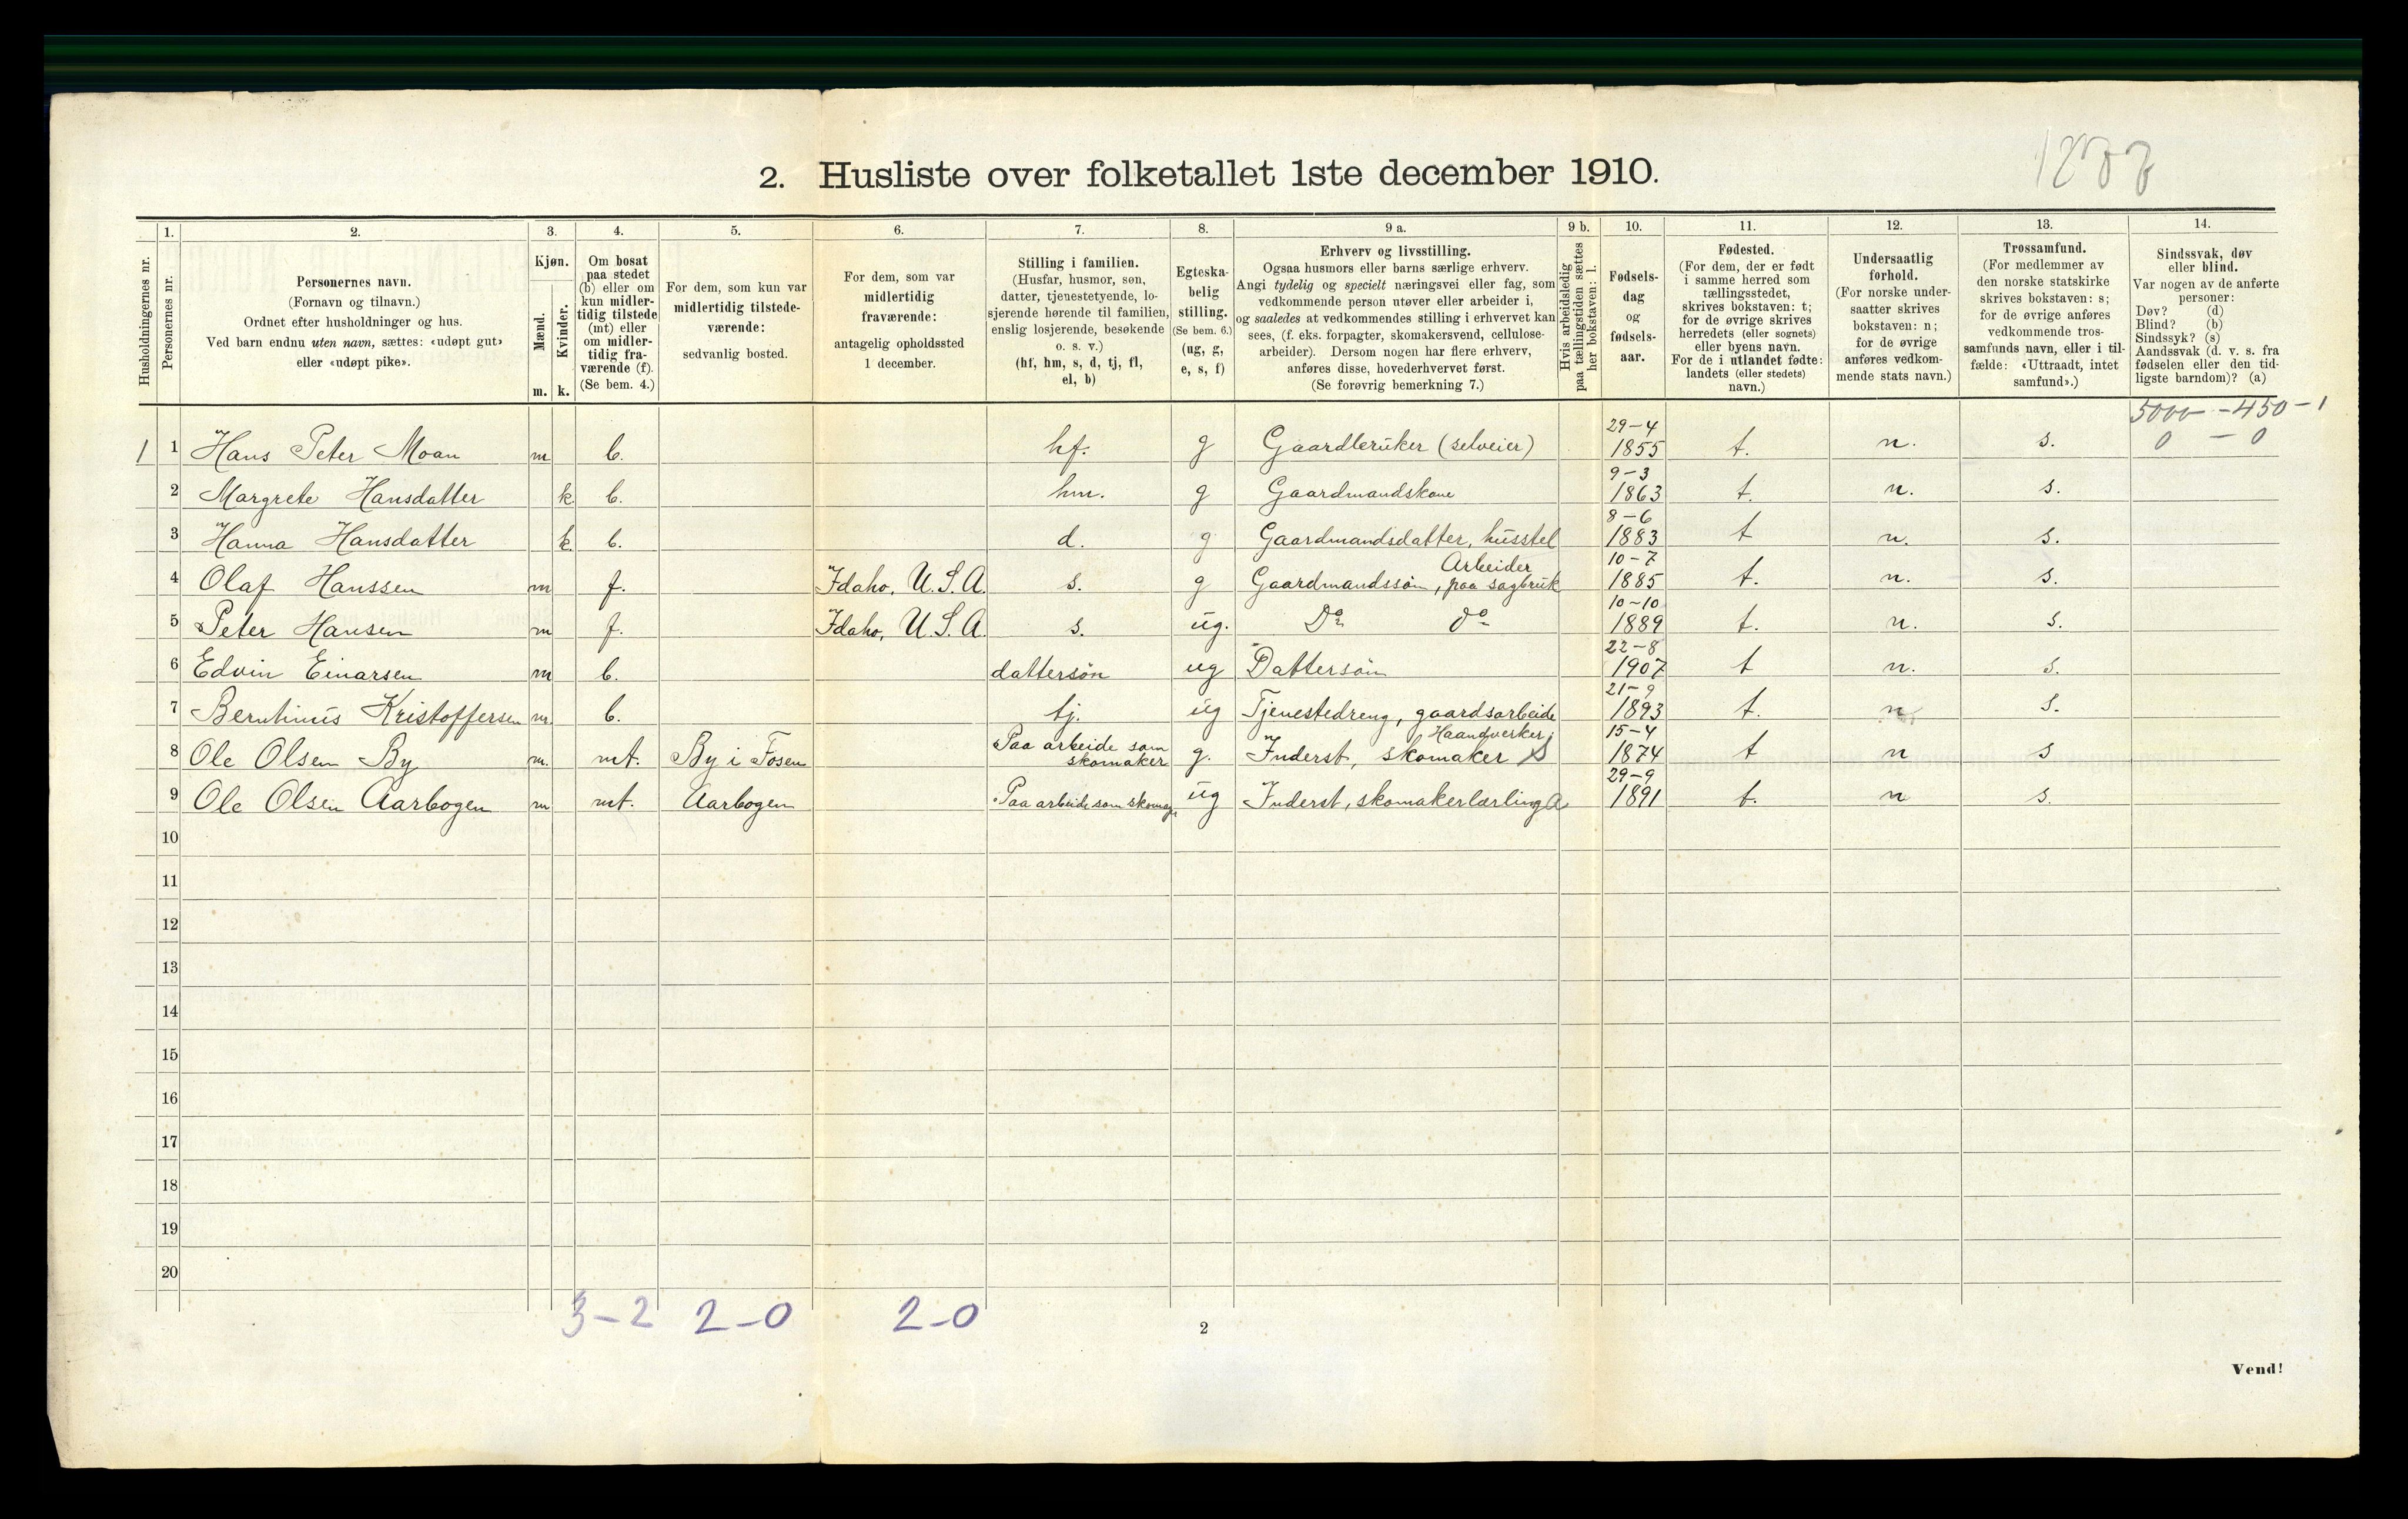 2. Husliste over folketallet 1ste december 1910.
1. 2. 3. 4. 5. 6. 7. 8. 9 a. 9 b. 10. 11. 12. 13. 14.
Husholdningernes nr.
Personernes nr.
Personernes navn.
(Fornavn og tilnavn.)
Ordnet efter husholdninger og hus.
Ved barn endnu uten navn, sættes: «udøpt gut»
eller «udøpt pike».
Kjøn.
Mænd.
Kvinder.
m. k.
Om bosat
paa stedet
(b) eller om
kun midler-
tidig tilstede
(mt) eller
om midler-
tidig fra-
værende (f).
(Se bem. 4.)
For dem, som kun var
midlertidig tilstede-
værende:
sedvanlig bosted.
For dem, som var
midlertidig
fraværende:
antagelig opholdssted
1 december.
Stilling i familien.
(Husfar, husmor, søn,
datter, tjenestetyende, lo-
sjerende hørende til familien,
enslig losjerende, besøkende
o. s. v.)
(hf, hm, s, d, tj, fl,
el, b)
Egteska-
belig
stilling.
(Se bem. 6.)
(ug, g,
e, s, f)
Erhverv og livsstilling.
Ogsaa husmors eller barns særlige erhverv.
Angi tydelig og specielt næringsvei eller fag, som
vedkommende person utøver eller arbeider i,
og saaledes at vedkommendes stilling i erhvervet kan
sees, (f. eks. forpagter, skomakersvend, cellulose-
arbeider). Dersom nogen har flere erhverv,
anføres disse, hovederhvervet først.
(Se forøvrig bemerkning 7.)
Hvis arbeidsledig
paa tællingstiden sættes
her bokstaven: l.
Fødsels-
dag
og
fødsels-
aar.
Fødested.
(For dem, der er født
i samme herred som
tællingsstedet,
skrives bokstaven: t;
for de øvrige skrives
herredets (eller sognets)
eller byens navn.
For de i utlandet fødte:
landets (eller stedets)
navn.)
Undersaatlig
forhold.
(For norske under-
saatter skrives
bokstaven: n;
for de øvrige
anføres vedkom-
mende stats navn.)
Trossamfund.
(For medlemmer av
den norske statskirke
skrives bokstaven: s;
for de øvrige anføres
vedkommende tros-
samfunds navn, eller i til-
fælde: «Uttraadt, intet
samfund».)
Sindssvak, døv
eller blind.
Var nogen av de anførte
personer:
Døv? (d)
Blind? (b)
Sindssyk? (s)
Aandssvak (d. v. s. fra
fødselen eller den tid-
ligste barndom)? (a)
5000 - 450 - 1
0 - 0
1 1 Hans Peter Moan m b. hf. g Gaardbruker (selveier) 29-4 1855 t. n. s.
2 Margrete Hansdatter k. b. hm. g Gaardmandskone 9-3 1863 t. n. s.
3 Hanna Hansdatter k. b. d. g Gaardmandsdatter, husstel 8-6 1883 t n. s.
4 Olaf Hanssen m f. Idaho, U.S.A. s. g Gaardmandssøn, Arbeider paa sagbruk 10-7 1885 t. n. s.
5 Peter Hansen m f. Idaho, U.S.A. s. ug. Do do 10-10 1889 t. n. s.
6 Edvin Einarsen m b. dattersøn ug Dattersøn 22-8 1907 t n. s.
7 Berntinus Kristoffersen m. b. tj. ug Tjenestedreng, gaardsarbeide 21-9 1893 t. n s.
8 Ole Olsen By m. mt. By i Fosen Paa arbeide som skomaker g. Inderst, skomaker Haandverker S 15-4 1874 t n s
9 Ole Olsen Aarbogen m mt. Aarbogen Paa arbeide som ug Inderst, skomakerlærling A 29-9 1891 t. n s.
10
11
12
13
14
15
16
17
18
19
20
3-2 2-0 2-0
2
Vend!